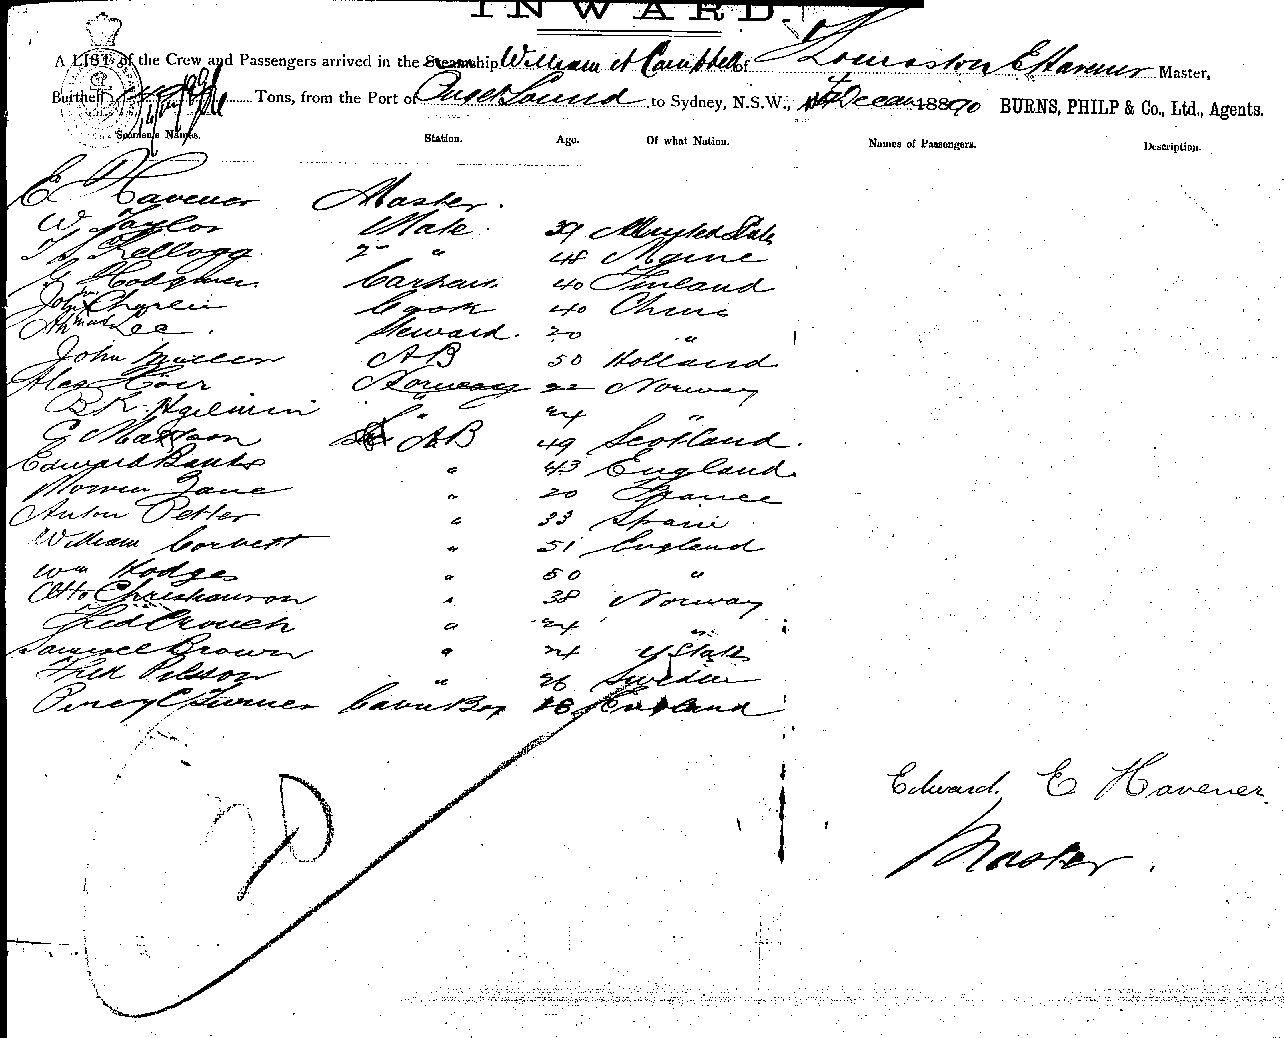 INWARD.
A LIST of the Crew and Passengers arrived in the Steamship William H Campbell of Thomaston E Havener Master,
Burthen Tons, from the Port of Puget Sound to Sydney, N.S.W., Decem 1890 BURNS, PHILP & Co., Ltd., Agents.
Seamen's Names. Station. Age. Of what Nation. Names of Passengers. Description.
E Havener Master.
W Taylor Mate. 39 States
Kellogg 2nd " 48 Maine
G Hodgmen 40 Finland
John Charlie Cook 40 China
Ah Lee. Steward. 20 "
John AB 50 Holland
Norway 22 Norway
" 24 "
G Mattson AB 49 Scotland.
Edward Banks " 43 England.
" 20 France
Anton Petter " 33
William Corbett " 51 England
Wm Hodges " 50 "
Otto Christianson " 38 Norway
Fred Crouch " 24 "
Samuel Brown " 24 U States
Pilsson " 26 Sweden
Percy C Turner Cabin Boy 18 England
20
Edward. E Havener.
Master.